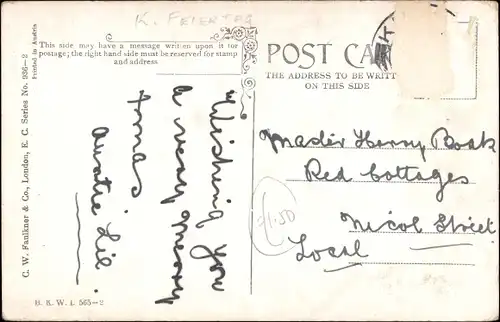 K. FEIERTAG
This side may have a message written upon it for
postage; the right hand side must be reserved for stamp
and address
POST CA
THE ADDRESS TO BE WRITT
ON THIS SIDE
C. W. Faulkner & Co., London, E. C. Series No. 936—2
Printed in Austria
Wishing you
a very merry
Xmas
Auntie Lil.
Master Henry Book
Red Cottages
Nicol Street
Local
1.50
B. K. W. I. 565—2